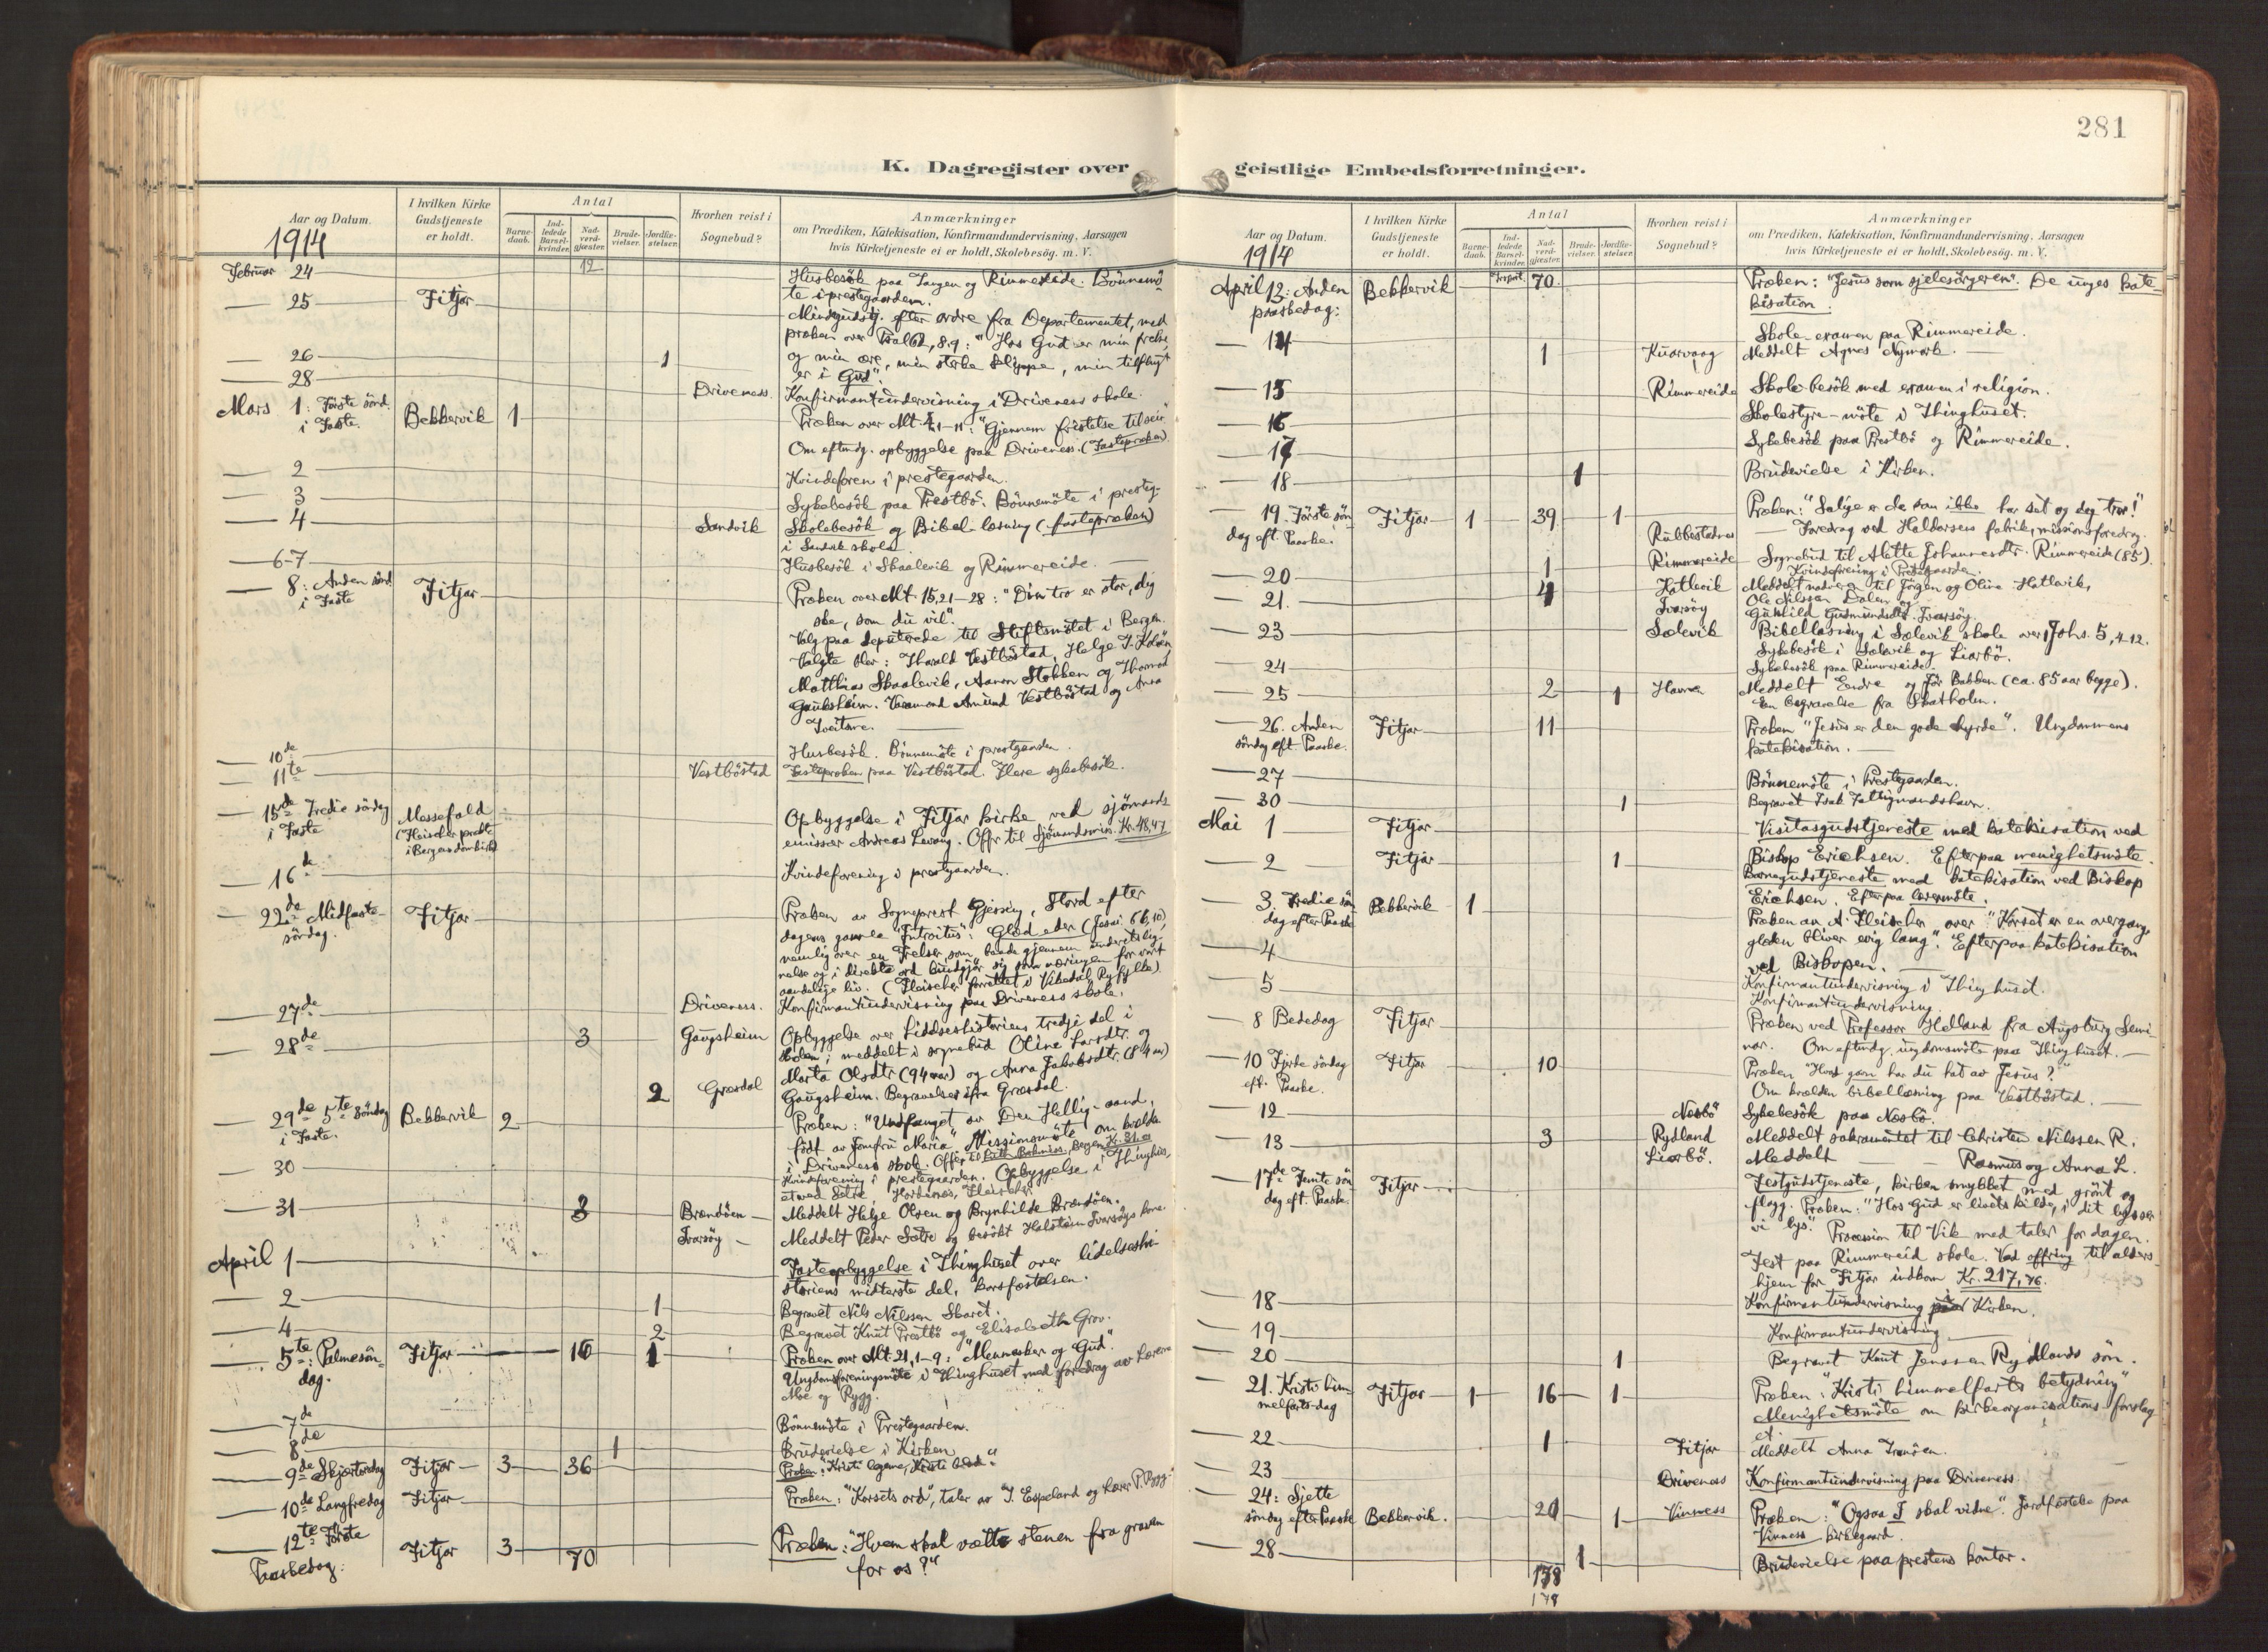 281
K. Dagregister over geistlige Embedsforretninger.
Aar og Datum.
1914
I hvilken Kirke
Gudstjeneste
er holdt.
Antal
Barne-
daab.
Ind-
ledede
Barsel-
kvinder.
Nad-
verd-
gjæster.
Brude-
vielser.
Jordfæ-
stelser.
Hvorhen reist i
Sognebud?
Anmærkninger
om Prædiken, Katekisation, Konfirmandundervisning, Aarsagen
hvis Kirketjeneste ei er holdt, Skolebesög. m. V.
12
Februar 24 Husbesök paa Tangen og Rimmereide. Bönnemö-
te i prestegaarden.
— 25 Fitjar Mindegudstj. efter ordre fra Departementet, med
præken over 62, 8.9: "Hos Gud er min frelse
— 26 1 og min ære, min sterke klippe, min tilflugt
— 28 er i Gud".
Driveness. Konfirmantundervisning i Driveness skole.
Mars 1: Förste sönd. Bekkervik 1 Præken over Mt. 4,1-11: "Gjennem fristelse til seir"
i Faste. Om eftmdg. opbyggelse paa Driveness. (Fastepræken)
— 2 Kvindeforen i prestegaarden.
— 3 Sykebesök paa Prestbö. Bönnemöte i presteg-
— 4 Sandvik Skolebesök og Bibel-læsning (fastepræken)
i Sandvik skole.
— 6-7 Husbesök i Skaalevik og Rimmereide.
— 8: Anden sönd. Fitjar Præken over Mt 15, 21-28: "Din tro er stor, dig
i Faste ske, som du vil".
Valg paa deputerede til Stiftsmötet i Bergen.
Valgte blev: Harald Vestböstad, Helge T.
Matthias Skaalevik, Aamon Stokken og Thomas
Gauksheim. Amund Vestböstad og Anna
Tveitane.
— 10de Husbesök. Bönnemöte i prestgaarden.
— 11te Vestböstad Fastepræken paa Vestböstad. Flere sykebesök.
— 15de Tredie söndag Messefald Opbyggelse i Fitjar kirke ved sjömands-
i Faste (Fleischer prækte
i Bergen domkirke) emissær Andreas Levang. Offr til Sjömandsmis. Kr. 48,47
— 16de Kvindeforening i prestgaarden.
— 22de Midfaste- Fitjar Præken av Sogneprest Gjessing, Stord efter
söndag. dagens gamle "Introitus": Glæd eder (Jesai. 66,10),
nemlig over en Frelser, som baade gjennem undervislig-
nelse og i direkte ord kundgjör sig som næringen for vort
aandelige liv. (Fleischer forrettet i Vikedal, Ryfylke).
— 27de Driveness. Konfirmantundervisning paa Driveness skole.
— 28de 3 Gaugsheim Opbyggelse over Liddseshistoriens tredje del i
skolen; meddelt i sognebud Oline Larsdtr. og
Marta Olsdtr (94 aar) og Anna Jakobsdtr. (84 aar)
2 Græsdal Gaugsheim. Begravelser ifra Græsdal.
— 29de 5te söndag Bekkervik 2 Præken: "Undfanget av Den Hellig-aand,
i Faste. födt av Jomfru Maria". Missionsmöte om kvelden
i Driveness skole. Offer til Bergen Kr. 31.01
— 30 Kvindeforening i prestegaarden. Opbyggelse i Thinghus-
et ved Sætre, Fleischer
— 31 3 Brandöen — Meddelt Helge Olsen og Brynhilde Brandöen.
Ivarsöy — Meddelt Peder Sætre og besökt Halstein Ivarsöys kone
April 1 Fasteopbyggelse i Thinghuset over lidelseshi-
storiens midterste del, korsfæstelsen.
— 2 1 Begravet Nils Nilssen Skaret.
— 4 2 Begravet Knut Prestbö og Elisabeth Grov.
— 5te: Palmesön- Fitjar 16 1 Præken over Mt. 21,1-9: "Mennesker og Gud".
dag. Ungdomsforeningsmöte i Thinghuset med foredrag av Lærerne
Moe og Rygg.
— 7de Bönnemöte i Prestegaarden.
— 8de 1 Brudevielse i Kirken
— 9de Skjærtorsdag Fitjar 3 36 Præken: "Kristi legeme, Kristi blod."
— 10de Langfredag Fitjar Præken: "Korsets ord", taler av J. Espeland og Lærer P. Rygg.
— 12te Förste Fitjar 3 70 Præken: "Hvem skal vælte stenen fra graven
Paaskedag: for os?"
Aar og Datum.
1914
I hvilken Kirke
Gudstjeneste
er holdt.
Antal
Barne-
daab.
Ind-
ledede
Barsel-
kvinder.
Nad-
verd-
gjæster.
Brude-
vielser.
Jordfæ-
stelser.
Hvorhen reist i
Sognebud?
Anmærkninger
om Prædiken, Katekisation, Konfirmandundervisning, Aarsagen
hvis Kirketjeneste ei er holdt, Skolebesög. m. V.
April 13: Anden Bekkervik Trnsport. 70 Præken: "Jesus som sjelesörgeren". De unges kate-
paaskedag: kisation.
Skole examen paa Rimmereide.
— 14 1 Kuarvaag Meddelt Agnes Nymark. —
— 15 Rimmereide Skolebesök med examen i religion.
— 16 Skolestyre-möte i Thinghuset.
— 17 Sykebesök paa Prestbö og Rimmereide.
— 18 1 Brudevielse i Kirken.
— 19. Förste sön- Fitjar 1 39 1 Præken: "Salige er de som ikke har set og dog tror!"
dag eft. Paaske. Rubbestadnes — Foredrag ved Haldorsens fabrik, missionsforedrag.
— 20 1 Rimmereide Sognebud til Alette Johannesdtr. Rimmereide (85).
Kvindeforening i Prestegaarden.
— 21. 4 Hatlevik Meddelt nadvera til Jörgen og Oline Hatlevik,
Ivarsöy Ole Nilssen Dalen og
Gunhild Gudmundsdtr. Ivarsöy.
— 23 Sælevik Bibellæsning i Sælevik skole over 1 Joh. 5, 4-12.
Sykebesök i Sælevik og Liarbö.
— 24 Sykebesök paa Rimmereide.
— 25 2 1 Havna Meddelt Endre og Bakken (ca. 85 aar begge).
En begravelse fra Skatholm.
— 26. Anden Fitjar 11 Præken "Jesus er den gode hyrde". Ungdommens
söndag eft Paaske. katekisation. —
— 27 Bönnemöte i Prestegaarden.
— 30 1 Begravet Isak Fattigmandshavn.
Mai 1 Fitjar Visitasgudstjeneste med katekisation ved
— 2 Fitjar 1 Biskop Erichsen. Efterpaa menighetsmöte.
Barnegudstjeneste med katekisation ved Biskop
— 3. Tredie sön- Bekkervik 1 Erichsen. Efterpaa lærermöte.
dag efter Paaske Præken av A. Fleischer over "Korset er en overgang,
glæden bliver evig lang". Efterpaa katekisation
— 4 ved Biskopen.
— 5 Konfirmantundervisning i Thinghuset.
Konfirmantundervisning.
— 8 Bededag Fitjar Præken ved Professor Helland fra Augsburg Semi-
nar. Om eftmdg. ungdomsmöte paa Thinghuset. —
— 10 Fjerde söndag Fitjar 10 Præken "Hvad gavn har du hat av Jesus?"
eft. Paaske. Om kvelden bibellæsning paa Vestböstad. —
— 12 Nesbö Sykebesök paa Nesbö.
— 13 3 Rydland Meddelt sakramentet til Christen Nilssen R.
Liarbö. Meddelt — — Rasmus og Anna L.
— 17de Femte sön- Fitjar Festgudstjeneste, kirken smykket med grönt og
dag eft. Paaske. flagg. Præken: "Hos Gud er livets kilde, i dit lys ser
vi lys". Procession til Vik med taler for dagen.
Fest paa Rimmereid skole. Ved offring til alders-
hjem for Fitjar indkom Kr. 217,76.
— 18 Konfirmantundervisning i Kirken.
— 19 Konfirmantundervisning
— 20 1 Begravet Knut Jenssen Rydlands sön.
— 21. Kristi him- Fitjar 1 16 1 Præken: "Kristi himmelfarts betydning"
melfarts-dag Menighetsmöte om kirkeorganisations-forslag
et.
— 22 1 Fitjar Meddelt Anna Tranöen.
— 23 Driveness Konfirmantundervisning paa Driveness.
— 24: Sjette Bekkervik. 20 1 Vinness Præken: "Ogsaa I skal vidne". Jordfæstelse paa
söndag efter Paaske Vinness kirkegaard.
— 28 1 Brudevielse paa prestens kontor.
178
178